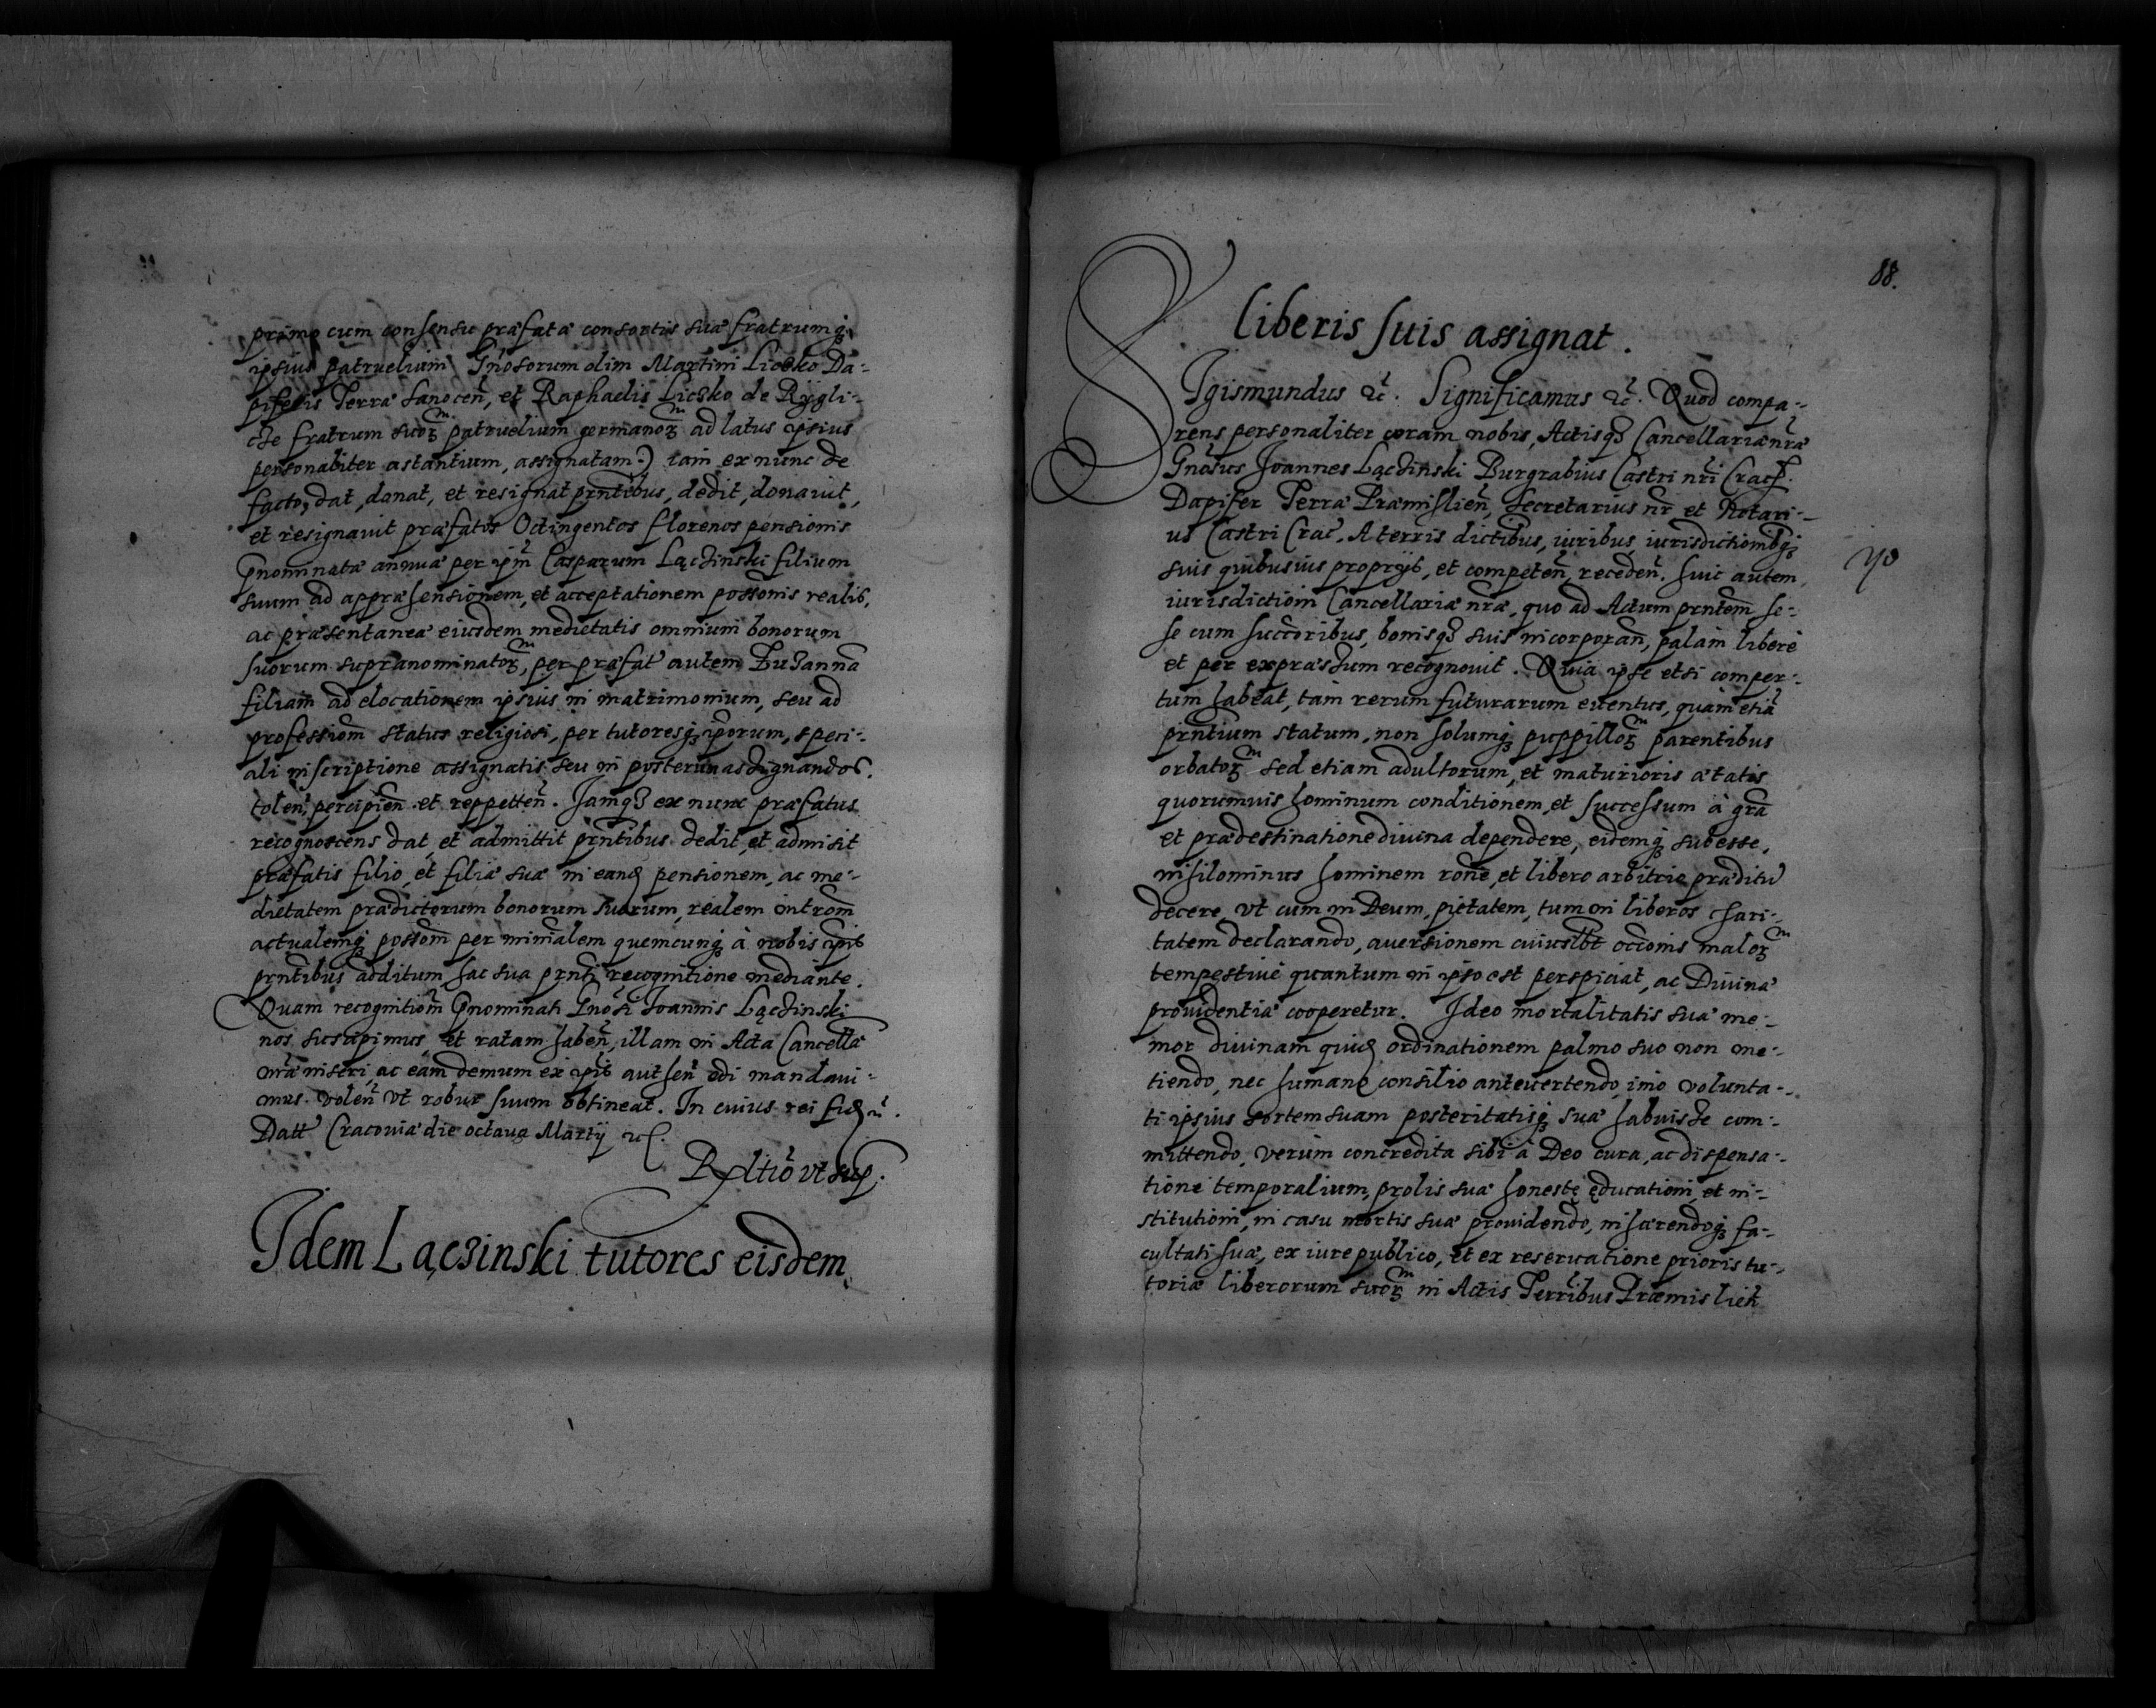 primo cum consensu præfatæ consortis suæ fratrumq̨
ipsius patruelium Gn̄osorum olim Martini Liosko Da-
piferis Terræ Sanocen̄, et Raphaelis Licsko de Rÿgli-
cze fratrum suoꝝ patruelium germanoꝝ ad latus ipsius
personaliter astantium, assignatam:) iam ex nunc de
facto, dat, donat, et resignat prn̄tibus, dedit, donauit,
et resignauit præfatos Octingentos florenos pensionis
Pnominatæ annuæ per ipm̄ Casparum Lączinski filium
suum ad appræhensionem, et acceptationem possonis realis,
ac præsentaneæ eiusdem medietatis omnium bonorum
suorum supranominatoꝝ, per præfat autem Zuzanna
filiam ad elocationem ipsius in matrimonium, seu ad
professiom̄ status religiosi, per tutoresq̨ ip̄orum, speci-
ali inscriptione assignatis seu in posterum assignandos.
tolen̄, percipien̄ et reppetten̄. Iamqȝ ex nunc præfatus
recognoscens dat, et admittit prn̄tibus dedit, et admisit
præfatis filio, et filiæ suæ in eand pensionem, ac me-
dietatem prædictorum bonorum suorum, realem introm̄
actualemq̨ possom̄ per minr̄alem quemcunq̨ à nobis ip̄is
prn̄tibus additum hac sua prn̄ti recognitione mediante.
Quam recognitiom̄ Pnominati Gn̄osi Ioannis Lączinski
nos suscipimus, et ratam haben̄, illam in Acta Cancellæ
nr̄æ inseri, ac eam demum ex ip̄is authen̄ edi mandaui-
mus. volen̄ vt robur suum obtineat. In cuius rei fid
Datt Cracouiæ die octaua Martÿ
Rltio vt sup.
Idem Lączinski tutores eisdem
88.
liberis suis assignat.
SIgismundus ꝛc̄. Significamus ꝛc̄. Quod compa-
rens personaliter coram nobis, Actisqȝ Cancellariæ nr̄æ
Gn̄osus Joannes Lączinski Burgrabius Castri nr̄i Crac.
Dapifer Terræ Præmislien̄, Secretarius nr̄ et Notari-
us Castri Crac̄. A terris dictibus, iuribus, iurisdictionibq̨
suis quibusuis proprÿs, et competen̄, receden̄. huic autem
iurisdictioni Cancellariæ nr̄æ, quo ad Actum prn̄tem se-
se cum succ̄oribus, bonisqȝ suis incorporan̄, palam liberè
et per expressum recognouit. Quia ipse etsi comper-
tum habeat, tam rerum futurarum euentus, quàm etiā
prn̄tium statum, non solumq̨ puppilloꝝ parentibus
orbatoꝝ sed etiam adultorum, et maturioris ætatis
quorumuis hominum conditionem, et successum à grā
et prædestinatione diuina dependere, eidemq̨ subesse,
nihilominus hominem rōne, et libero arbitrio præditū
decere, vt cum in Deum, pietatem, tum in liberos chari-
tatem declarando, auersionem cuiuslbt occ̄onis maloꝝ
tempestiuè quantum in ipso est perspiciat, ac Diuinæ
prouidentiæ cooperetur. Ideo mortalitatis suæ me-
mor diuinam quid ordinationem palmo suo non me-
tiendo, nec humano consilio anteuertendo, imò volunta-
ti ipsius sortem suam posteritatisq̨ suæ habuisse com-
mittendo, verùm concredita sibi à Deo cura, ac dispensa-
tione temporalium, prolis suæ honestę educationi, et in-
stitutioni, in casu mortis suæ prouidendo, inhærendoq̨ fa-
cultati suæ, ex iure publico, et ex reseruatione prioris tu-
toriæ liberorum suoꝝ in Actis Terr̄ibus Præmislien̄